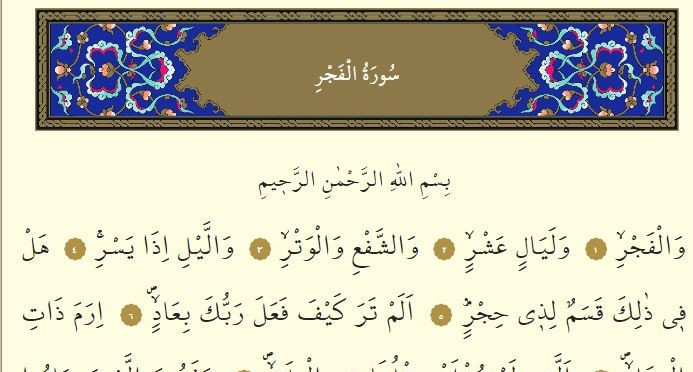 سُورَةُ الْفَجْرِ
بِسْمِ اللّٰهِ الرَّحْمٰنِ الرَّحٖيمِ
وَالْفَجْرِۙ ١ وَلَيَالٍ عَشْرٍۙ ٢ وَالشَّفْعِ وَالْوَتْرِۙ ٣ وَالَّيْلِ اِذَا يَسْرِۚ ٤ هَلْ
فٖي ذٰلِكَ قَسَمٌ لِذٖي حِجْرٍؕ ٥ اَلَمْ تَرَ كَيْفَ فَعَلَ رَبُّكَ بِعَادٍۙۖ ٦ اِرَمَ ذَاتِ